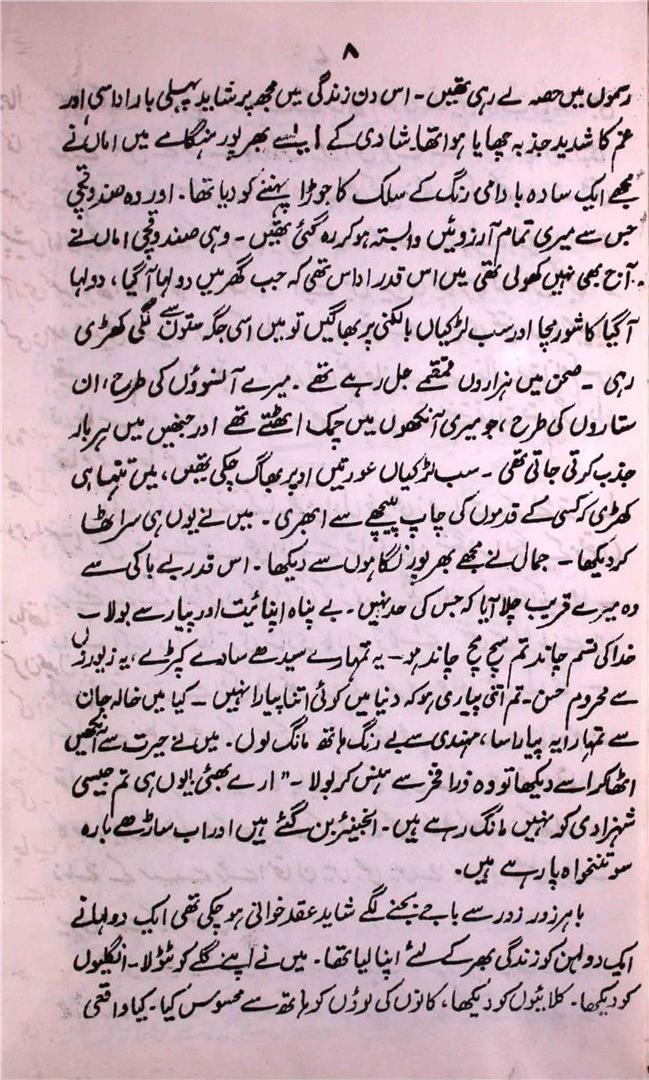 ۸
رسموں میں حصہ لے رہی تھیں۔ اس دن زندگی میں مجھ پر شاید پہلی بار اداسی اور
غم کا شدید جذبہ چھایا ہوا تھا۔ شادی کے ایسے بھرپور ہنگامے میں اماں نے
مجھے ایک سادہ بادامی رنگ کے سلک کا جوڑا پہننے کو دیا تھا۔ اور وہ صندوقچی
جس سے میری تمام آرزوئیں وابستہ ہو کر رہ گئی تھیں۔ وہی صندوقچی اماں نے
آج بھی نہیں کھولی تھی میں اس قدر اداس تھی کہ جب گھر میں دولہا آ گیا، دولہا
آ گیا کا شور مچا اور سب لڑکیاں بالکنی پر بھاگیں تو میں اسی جگہ ستون سے لگی کھڑی
رہی ۔ صحن میں ہزاروں قمقمے جل رہے تھے ۔ میرے آنسوؤں کی طرح، ان
ستاروں کی طرح، جو میری آنکھوں میں چمک اٹھتے تھے اور جنھیں میں ہر بار
جذب کرتی جاتی تھی ۔ سب لڑکیاں عورتیں اوپر بھاگ چکی تھیں، میں تنہا ہی
کھڑی کہ کسی کے قدموں کی چاپ پیچھے سے ابھری ۔ میں نے یوں ہی سر اٹھا
کر دیکھا ۔ جمال نے مجھے بھرپور نگاہوں سے دیکھا ۔ اس قدر بے باکی سے
وہ میرے قریب چلا آیا کہ جس کی حد نہیں ۔ بے پناہ اپنائیت اور پیار سے بولا ۔
خدا کی قسم چاند تم سچ مچ چاند ہو ۔ یہ تمہارے سیدھے سادے کپڑے، یہ زیوروں
سے محروم حسن ۔ تم اتنی پیاری ہو کہ دنیا میں کوئی اتنا پیارا نہیں ۔ کیا میں خالہ جان
سے تمہارا یہ پیارا سا، مہندی سے بے رنگ ہاتھ مانگ لوں ۔ میں نے حیرت سے آنکھیں
اٹھا کر اسے دیکھا تو وہ ذرا فخر سے ہنس کر بولا ۔ " ارے بھئی یوں ہی تم جیسی
شہزادی کو نہیں مانگ رہے ہیں ۔ انجینئر بن گئے ہیں اور اب ساڑھے بارہ
سو تنخواہ پا رہے ہیں ۔
باہر زور زور سے باجے بجنے لگے شاید عقد خوانی ہو چکی تھی ایک دولہا نے
ایک دولہن کو زندگی بھر کے لئے اپنا لیا تھا ۔ میں نے اپنے گلے کو ٹٹولا ۔ انگلیوں
کو دیکھا ۔ کلائیوں کو دیکھا، کانوں کی لوؤں کو ہاتھ سے محسوس کیا ۔ کیا واقعی